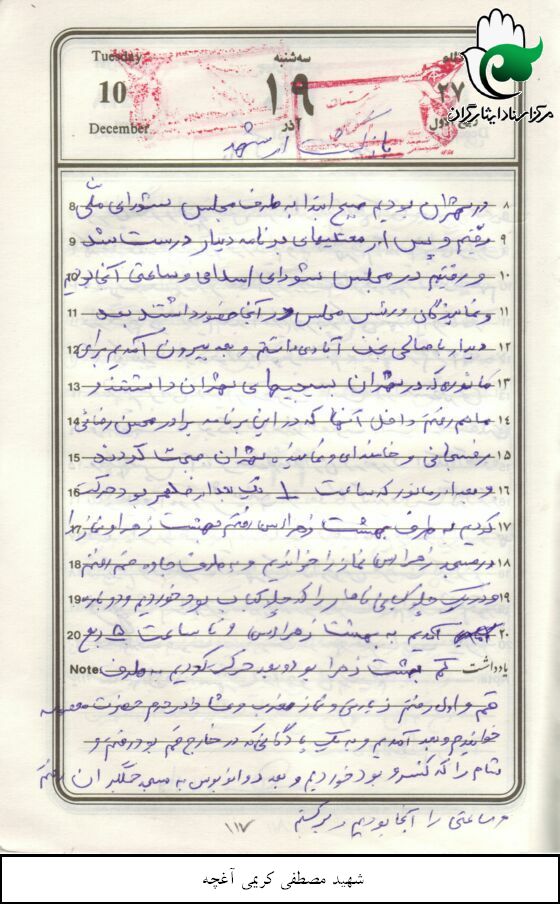 Tuesday
سه‌شنبه
10
۱۹
۲۷
December
آذر
مرکز اسناد ایثارگران
بازگشت از مشهد
8 در تهران بودیم صبح ابتدا به طرف مجلس شورای ملی ۸
9 رفتیم و پس از معطلیهای برنامه دیدار درست شد ۹
10 و رفتیم در مجلس شورای اسلامی و ساعتی آنجا بودیم ۱۰
11 و نمایندگان و رئیس مجلس در آنجا حضور داشتند بعد ۱۱
12 دیدار با صالحی نجف آبادی داشتیم و بعد بیرون آمدیم برای ۱۲
13 مانوری که در تهران بسیجیهای تهران داشتند و ۱۳
14 ما هم رفتیم داخل آنها که در این برنامه برادر محسن رضائی ۱۴
15 رفسنجانی و خامنه‌ای و نماینده تهران صحبت کردند ۱۵
16 و بعد از مانور که ساعت ۱ بعد از ظهر بود حرکت ۱۶
17 کردیم به طرف بهشت زهرا رفتیم بهشت زهرا و نماز را ۱۷
18 در مسجد زهرا نماز را خواندیم و به طرف جاده قم رفتیم ۱۸
19 و در یک چلوکبابی ناهار را که چلوکباب بود خوردیم و دوباره ۱۹
20 آمدیم به بهشت زهرا و تا ساعت ۵ ربع ۲۰
Note کم بهشت زهرا بود و بعد حرکت کردیم به طرف یادداشت
قم و اول رفتیم زیارت و نماز مغرب و عشا را در حرم حضرت معصومه
خواندیم و بعد آمدیم و به یک پادگانی که در خارج قم بود رفتیم و
شام را که کنسرو بود خوردیم و بعد دو اتوبوس به مسجد جمکران رفتیم
و ساعتی را آنجا بودیم و برگشتیم
۱۱۷
شهید مصطفی کریمی آغچه